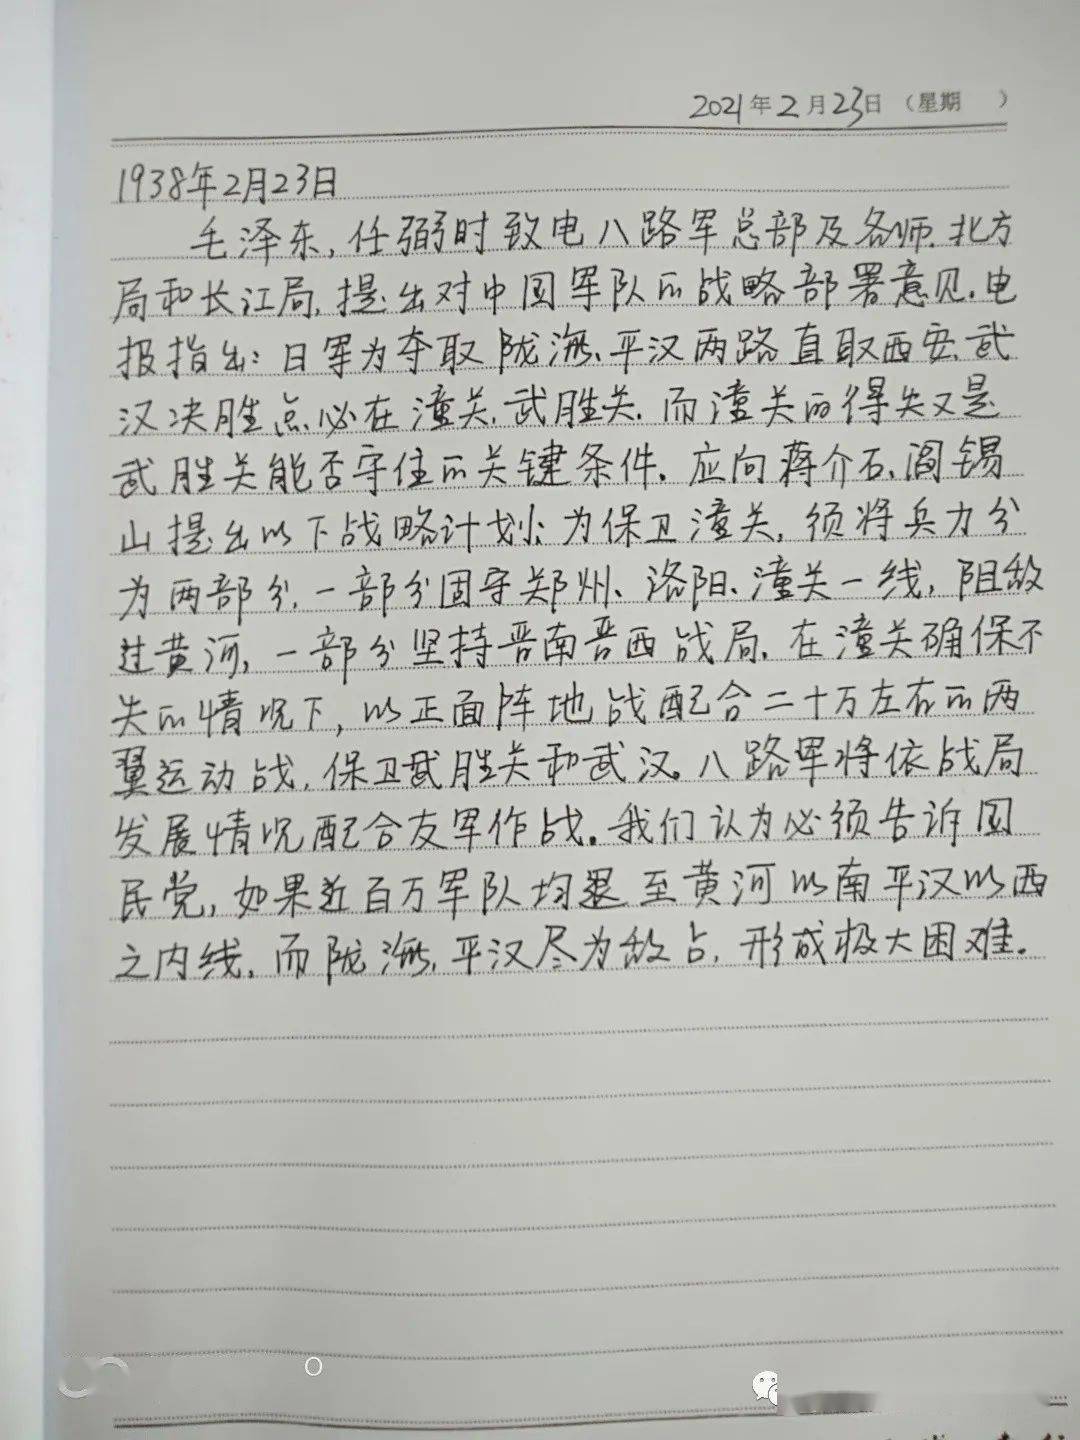 2021年2月23日 （星期　　）
1938年2月23日
毛泽东,任弼时致电八路军总部及各师.北方
局和长江局,提出对中国军队的战略部署意见.电
报指出:日军为夺取陇海、平汉两路直取西安、武
汉决胜点必在潼关.武胜关.而潼关的得失又是
武胜关能否守住的关键条件。应向蒋介石、阎锡
山提出以下战略计划:为保卫潼关,须将兵力分
为两部分,一部分固守郑州、洛阳、潼关一线,阻敌
过黄河,一部分坚持晋南晋西战局.在潼关确保不
失的情况下,以正面阵地战配合二十万左右的两
翼运动战,保卫武胜关和武汉。八路军将依战局
发展情况配合友军作战。我们认为必须告诉国
民党,如果近百万军队均退至黄河以南平汉以西
之内线.而陇海,平汉尽为敌占,形成极大困难。